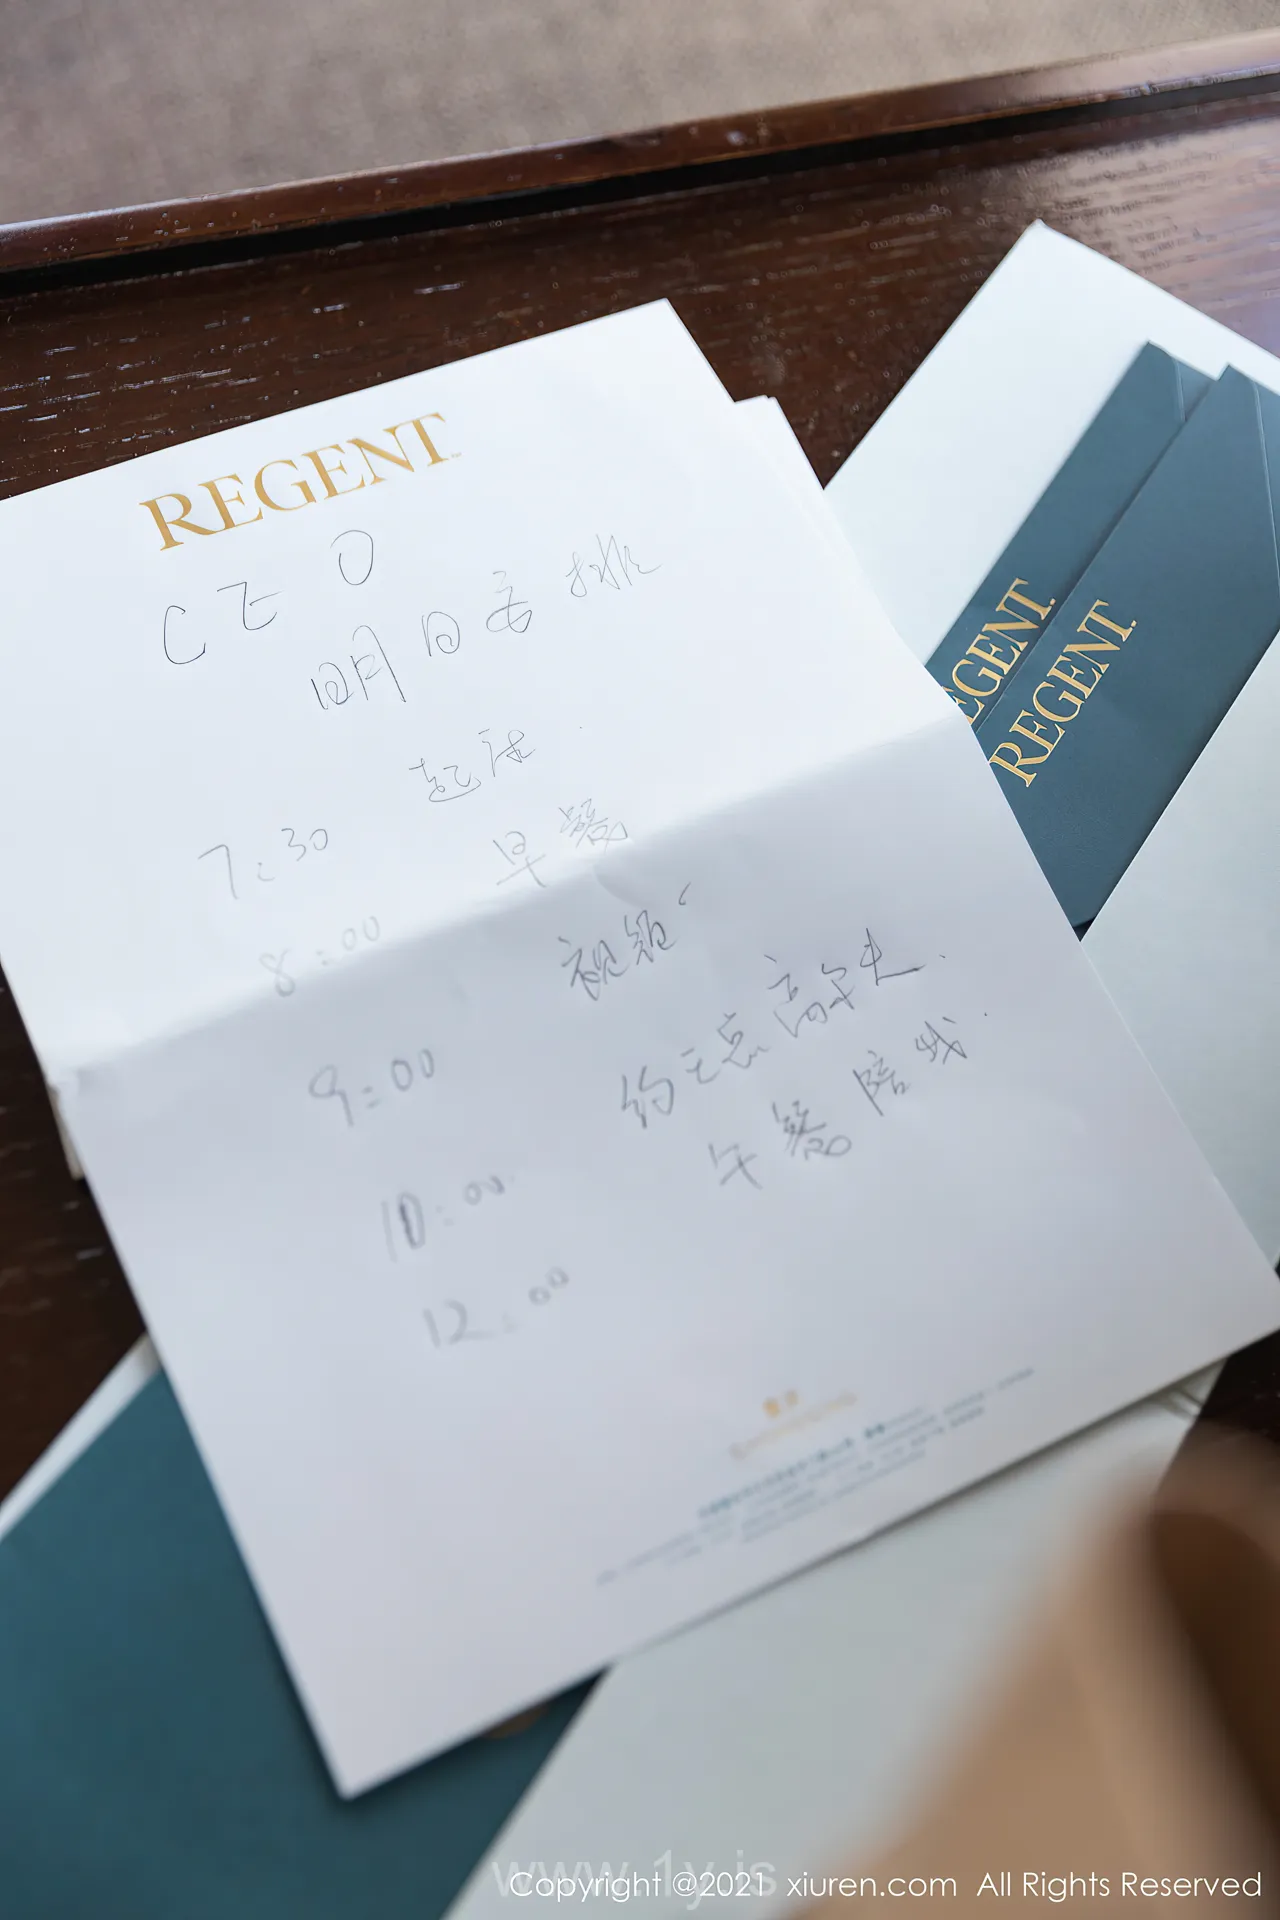 REGENT
CEO
明日安排
7:30 起床.
8:00 早餐
9:00 视频
10:00 约王总高尔夫.
12:00 午餐陪我.
EGENT
REGENT
www.1y.is
Copyright @2021 xiuren.com All Rights Reserved